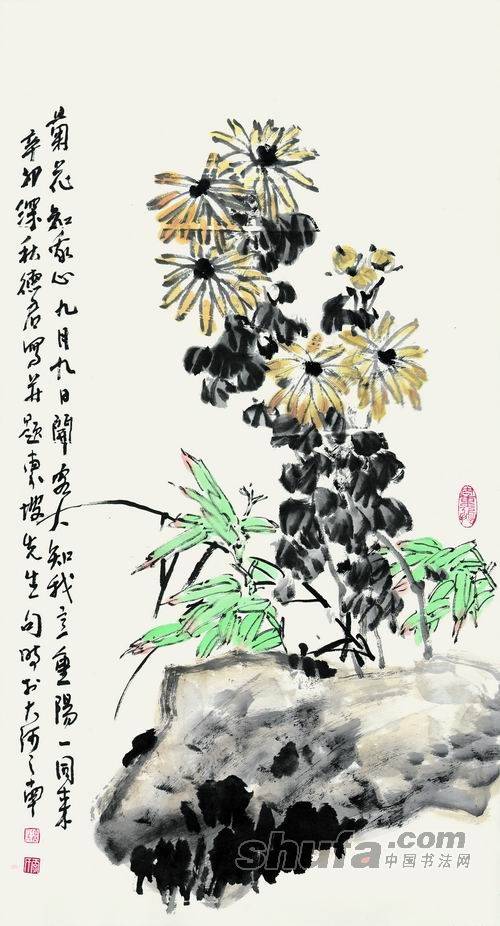 菊花知我心九月九日開客人知我意重陽一同来
辛卯深秋德君寫并題東坡先生句時於大河之南
shufa.com
中国书法网